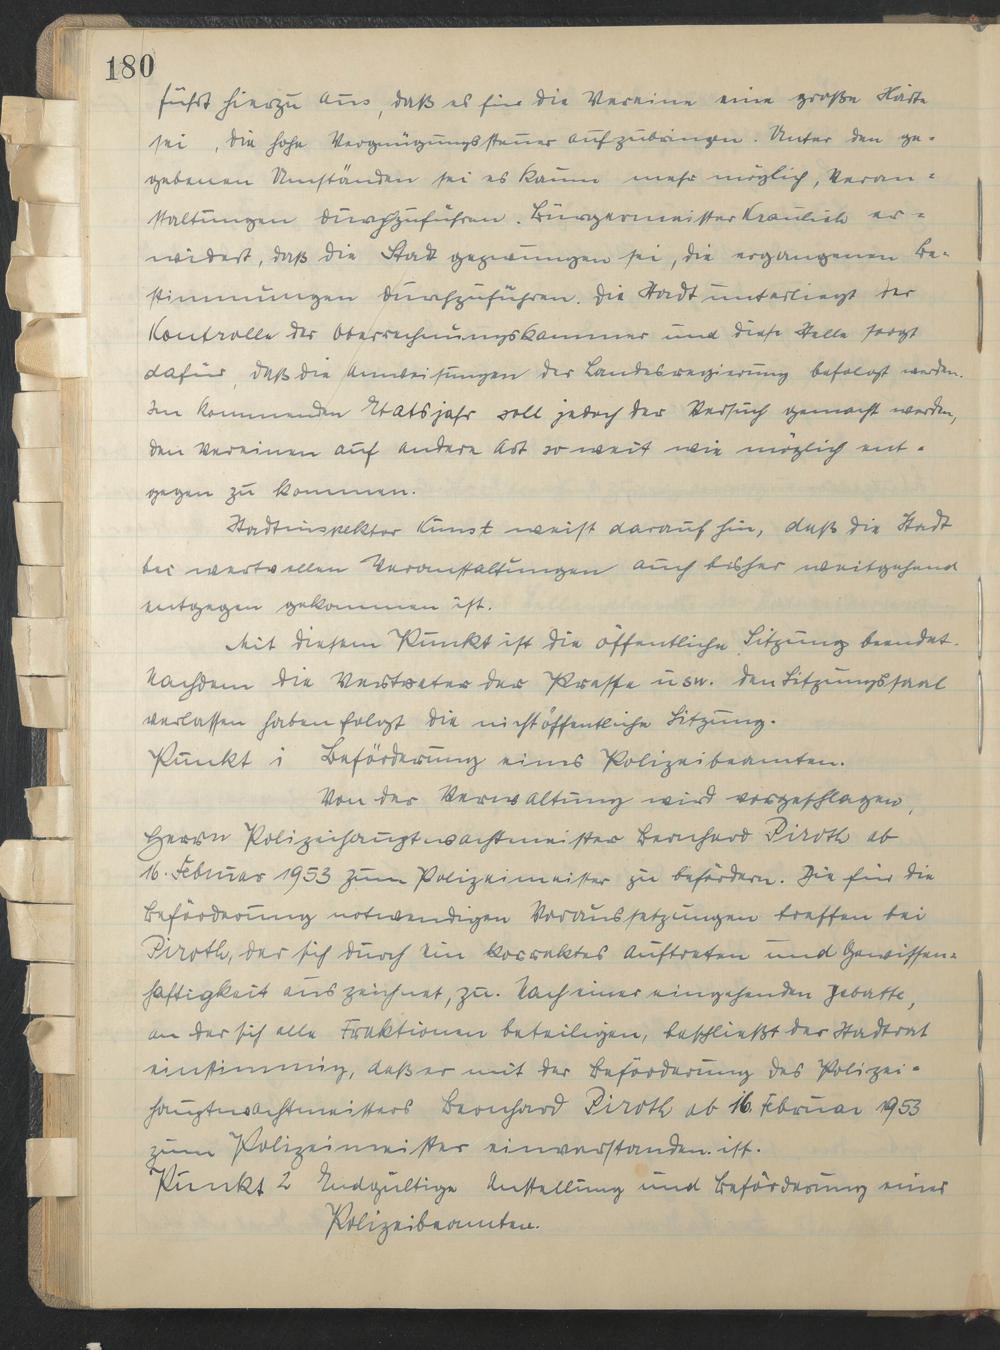 180
führt hierzu aus, daß es für die Vereine eine große Härte
sei, die hohe Vergnügungssteuer aufzubringen. Unter den ge-
gebenen Umständen sei es kaum mehr möglich, Veran-
staltungen durchzuführen. Bürgermeister Kraulich er-
widert, daß die Stadt gezwungen sei, die ergangenen Be-
stimmungen durchzuführen. Die Stadt unterliegt der
Kontrolle der Oberrechnungskammer und diese Stelle sorgt
dafür, daß die Anweisungen der Landesregierung befolgt werden.
Im kommenden Etatsjahr soll jedoch der Versuch gemacht werden,
den Vereinen auf andere Art so weit wie möglich ent-
gegen zu kommen.
Stadtinspektor Kunst weist darauf hin, daß die Stadt
bei wertvollen Veranstaltungen auch bisher weitgehend
entgegen gekommen ist.
Mit diesem Punkt ist die öffentliche Sitzung beendet.
Nachdem die Vertreter der Presse usw. den Sitzungssaal
verlassen haben folgt die nichtöffentliche Sitzung.
Punkt 1 Beförderung eines Polizeibeamten.
Von der Verwaltung wird vorgeschlagen,
Herrn Polizeihauptwachtmeister Bernhard Piroth ab
16. Februar 1953 zum Polizeimeister zu befördern. Die für die
Beförderung notwendigen Voraussetzungen treffen bei
Piroth, der sich durch ein korrektes Auftreten und Gewissen-
haftigkeit auszeichnet, zu. Nach einer eingehenden Debatte,
an der sich alle Fraktionen beteiligen, beschließt der Stadtrat
einstimmig, daß er mit der Beförderung des Polizei-
hauptwachtmeisters Bernhard Piroth ab 16. Februar 1953
zum Polizeimeister einverstanden ist.
Punkt 2 Endgültige Anstellung und Beförderung eines
Polizeibeamten.